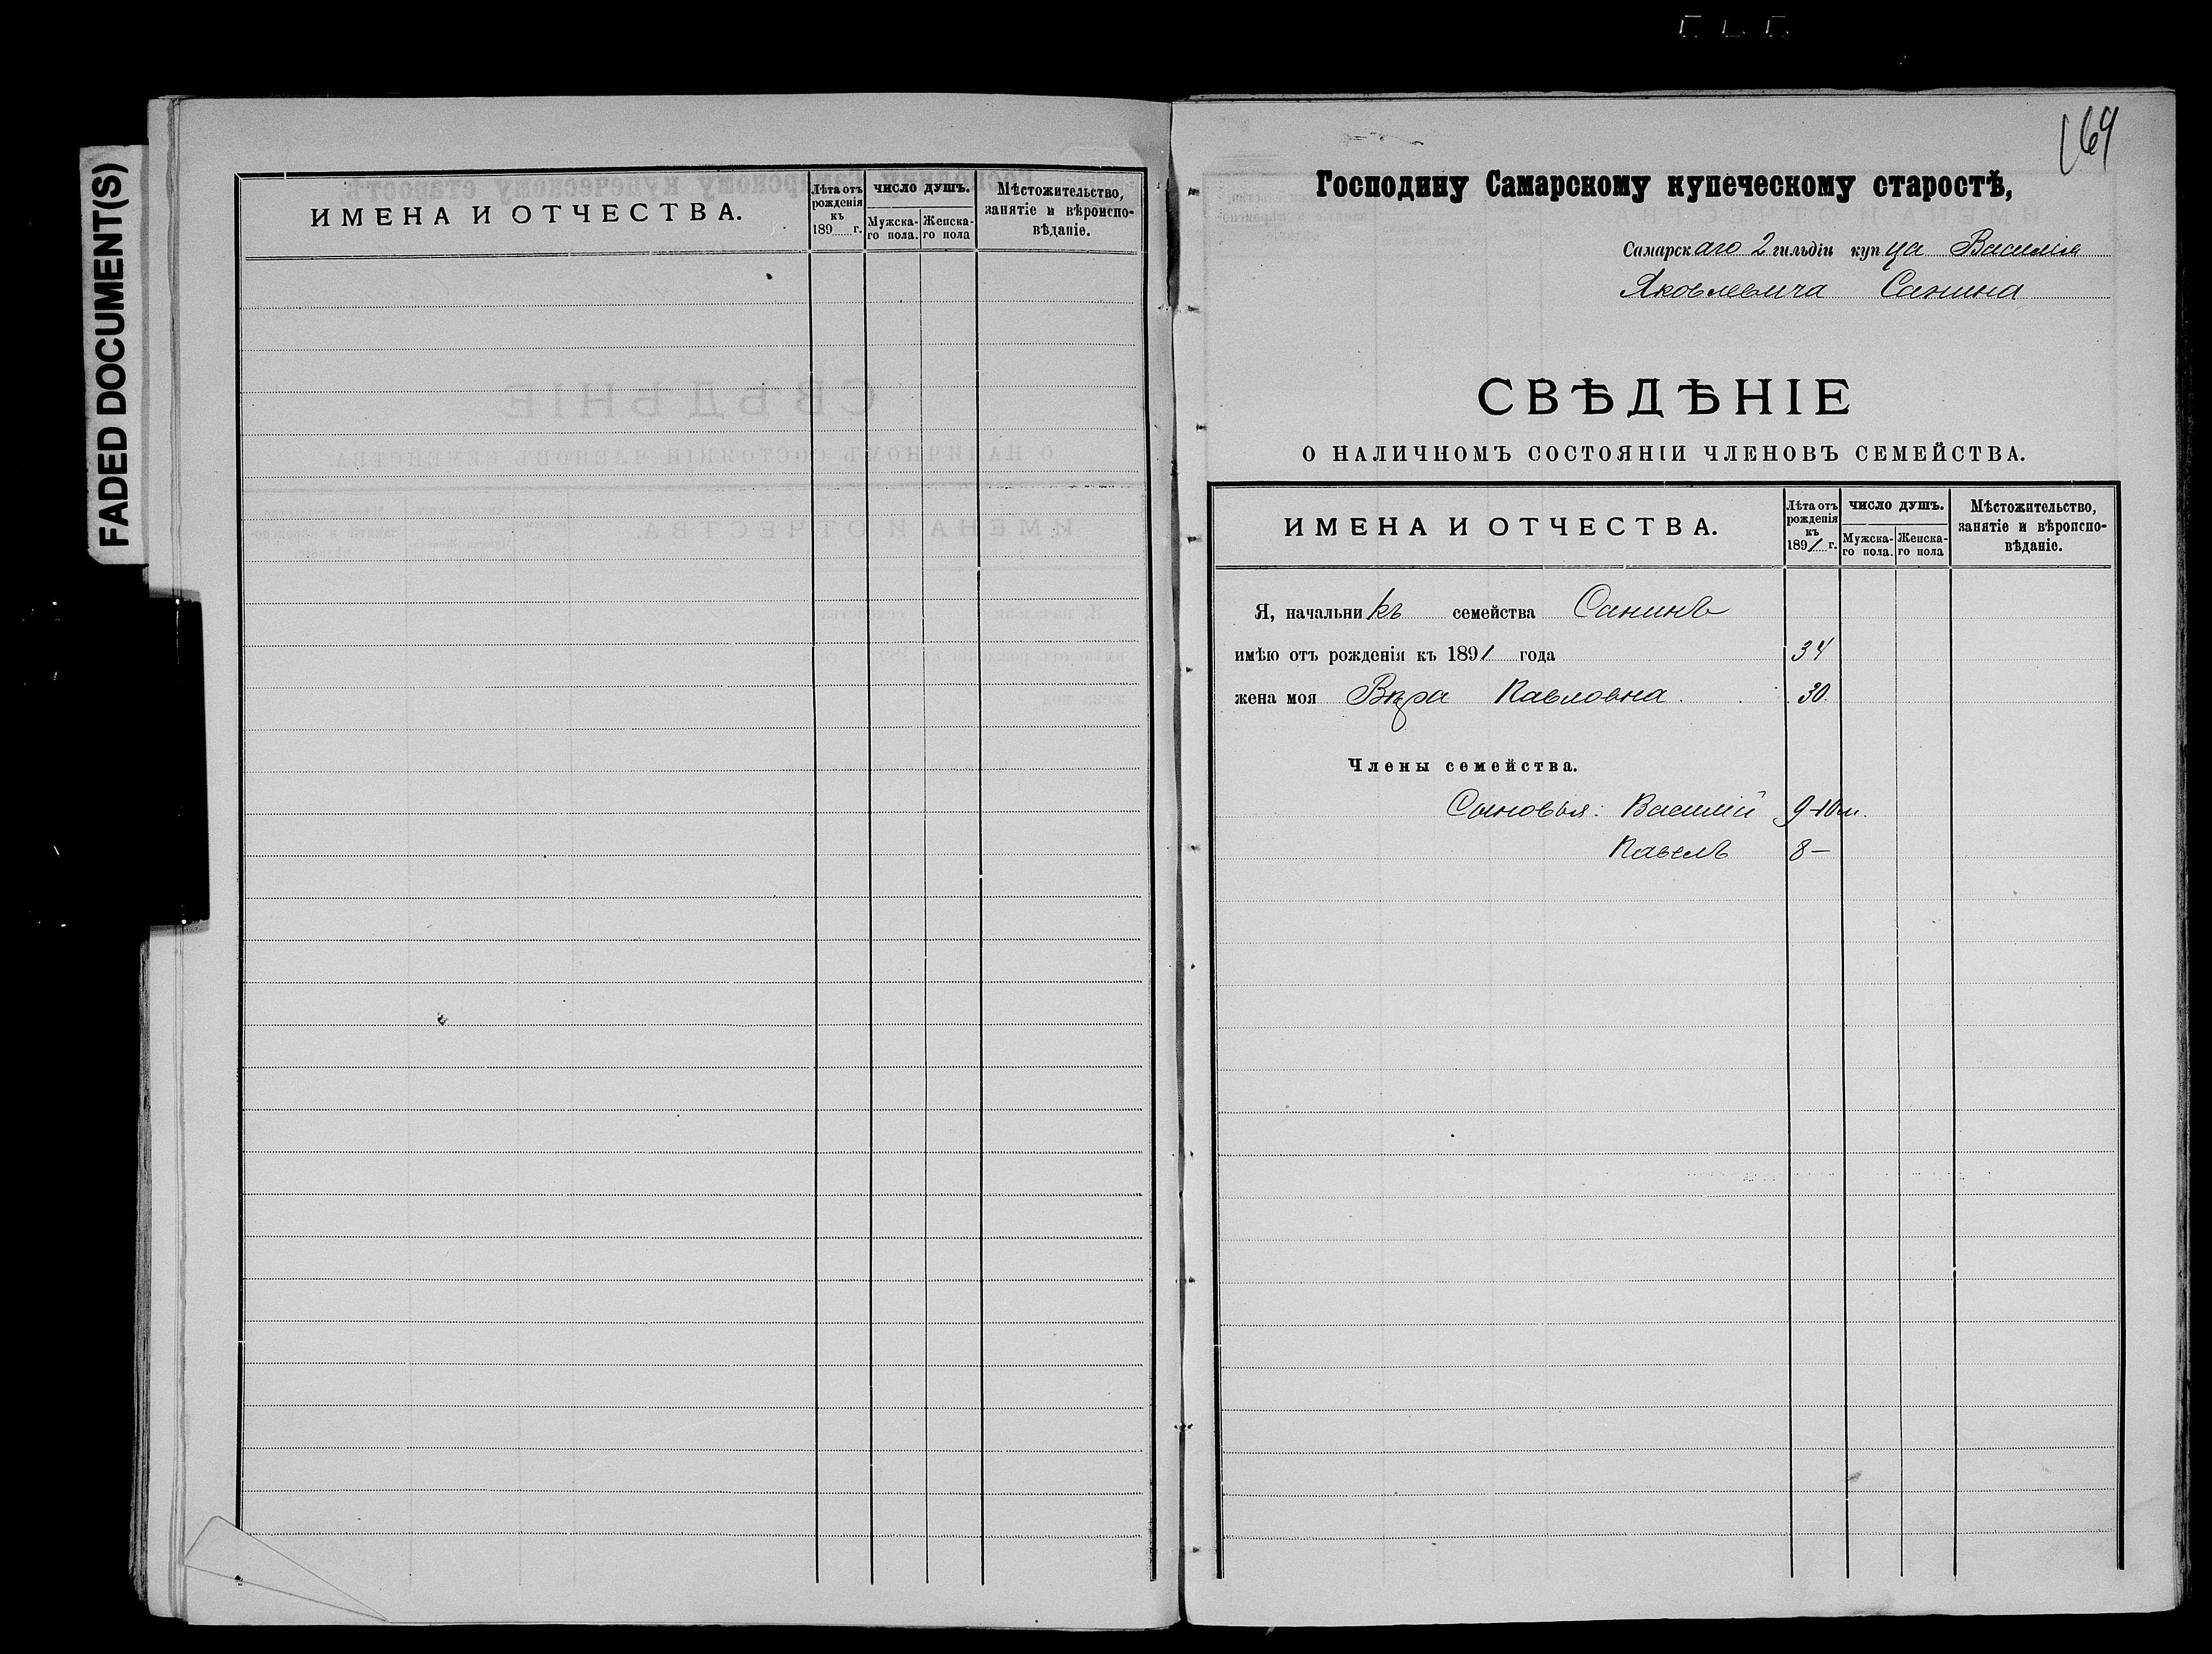 FADED DOCUMENT(S)
ИМЕНА И ОТЧЕСТВА.
Лѣта отъ рожденія къ 189 г.
ЧИСЛО ДУШЪ.
Мужска-го пола.
Женска-го пола
Мѣстожительство, занятіе и вѣроиспо-вѣданіе.
169
Господину Самарскому купеческому старостѣ,
Самарскаго 2 гильдіи купца Василія
Яковлевича Санина
СВѢДѢНІЕ
О НАЛИЧНОМЪ СОСТОЯНІИ ЧЛЕНОВЪ СЕМЕЙСТВА.
ИМЕНА И ОТЧЕСТВА.
Лѣта отъ рожденія къ 1891 г.
ЧИСЛО ДУШЪ.
Мужска-го пола.
Женска-го пола
Мѣстожительство, занятіе и вѣроиспо-вѣданіе.
Я, начальникъ семейства Санинъ
имѣю отъ рожденія къ 1891 года 34
жена моя Вѣра Павловна. 30.
Члены семейства.
Сыновья: Василій 9-10м.
Павелъ 8 —